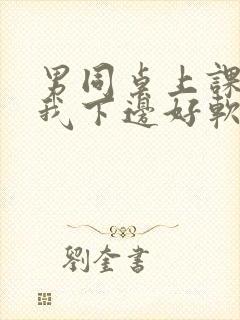 男同桌上課
我下邊好軟
劉奎書